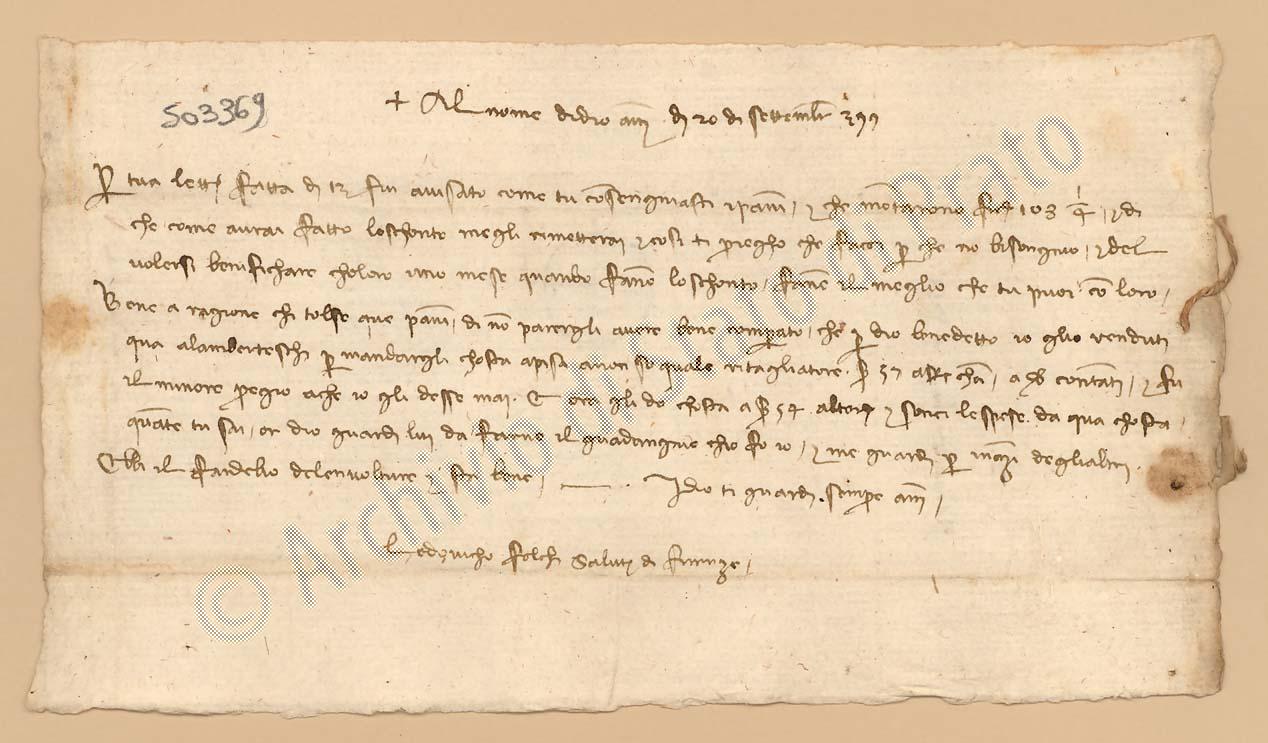 503369
+ Al nome di dio am di 20 di settembr 399
P tua lett fatta di 12 fui avisato come tu consengniasti i pani, e che montarono fior 103 e di
che come aurai fatto lo schonto megli rimetterai e chosi ti priegho che facci p che no bisongnio, e del
volersi benifichare choloro uno mese quando fano lo schonto, fane il meglio che tu puoi co loro,
Bene a ragione chi tolse que pani, di no parergli avere bene comperato, che p dio benedetto io gli o venduti
qua alamberteschi p mandargli chosta a pisa a non so quale ritagliatore 57 contanti, e fu
il minore pregio che io gli desse mai. Et ora gli do chosta a 54 e sonci le spese da qua chosta
quante tu sai, or dio guardi lui da farne il guadangnio chio fo io, e me guardi p degli altri.
Ebbi il fardello delenvolture e sta bene, Idio ti guardi sempre am,
Lodovicho saluti di Firenze,
© Archivio di Stato di Prato